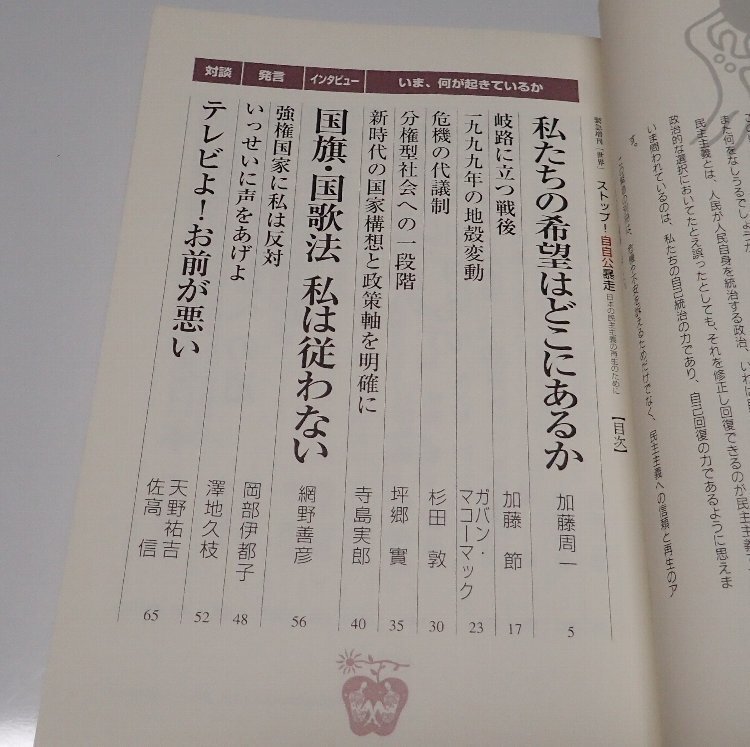 また何をなしうるでしょうか
民主主義とは、人民が人民自身を統治する政治、いわば
政治的な選択においてたとえ誤ったとしても、それを修正し回復できるのが民主主義
いま問われているのは、私たちの自己統治の力であり、自己回復の力であるように思えま
す。
民主主義への信頼と再生のア
緊急増刊『世界』 ストップ!自自公暴走 日本の民主主義の再生のために 【目次】
いま、何が起きているか
私たちの希望はどこにあるか 加藤周一 5
岐路に立つ戦後 加藤 節 17
一九九九年の地殻変動 ガバン・マコーマック 23
危機の代議制 杉田 敦 30
分権型社会への一段階 坪郷 實 35
新時代の国家構想と政策軸を明確に 寺島実郎 40
インタビュー
国旗・国歌法 私は従わない 網野善彦 56
発言
強権国家に私は反対 岡部伊都子 48
いっせいに声をあげよ 澤地久枝 52
対談
テレビよ!お前が悪い 天野祐吉 佐高 信 65